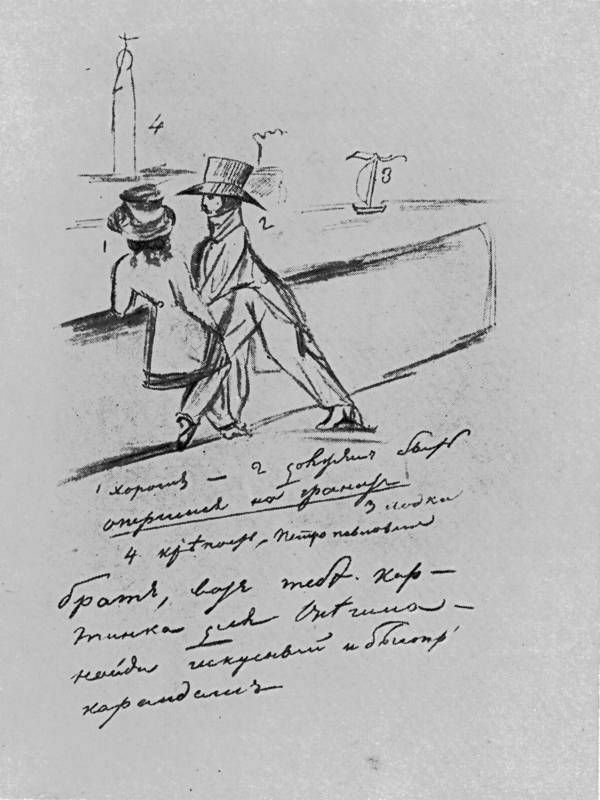 4
3
2
1
1 хорошъ — 2 долженъ быть
опершися на гранитъ
3 лодка
4. крѣпость, Петропавловская
Братъ, вотъ тебѣ кар—
тинка для Онѣгина —
найди искусный и быстрый
карандашъ